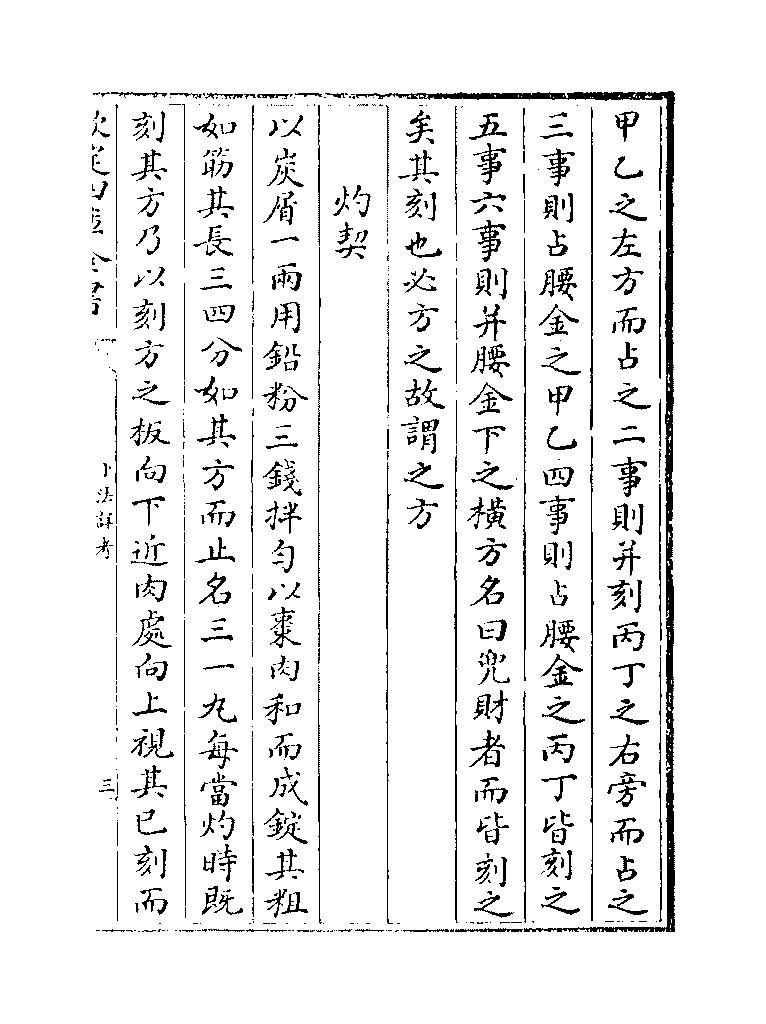 甲乙之左方而占之二事則并刻丙丁之右旁而占之
三事則占腰金之甲乙四事則占腰金之丙丁皆刻之
五事六事則并腰金下之橫方名曰兜財者而皆刻之
矣其刻也必方之故謂之方
灼契
以炭屑一兩用鉛粉三錢拌勻以棗肉和而成錠其粗
如筋其長三四分如其方而止名三一丸每當灼時既
刻其方乃以刻方之板向下近肉處向上視其已刻而
欽定四庫全書
卜法詳考
三